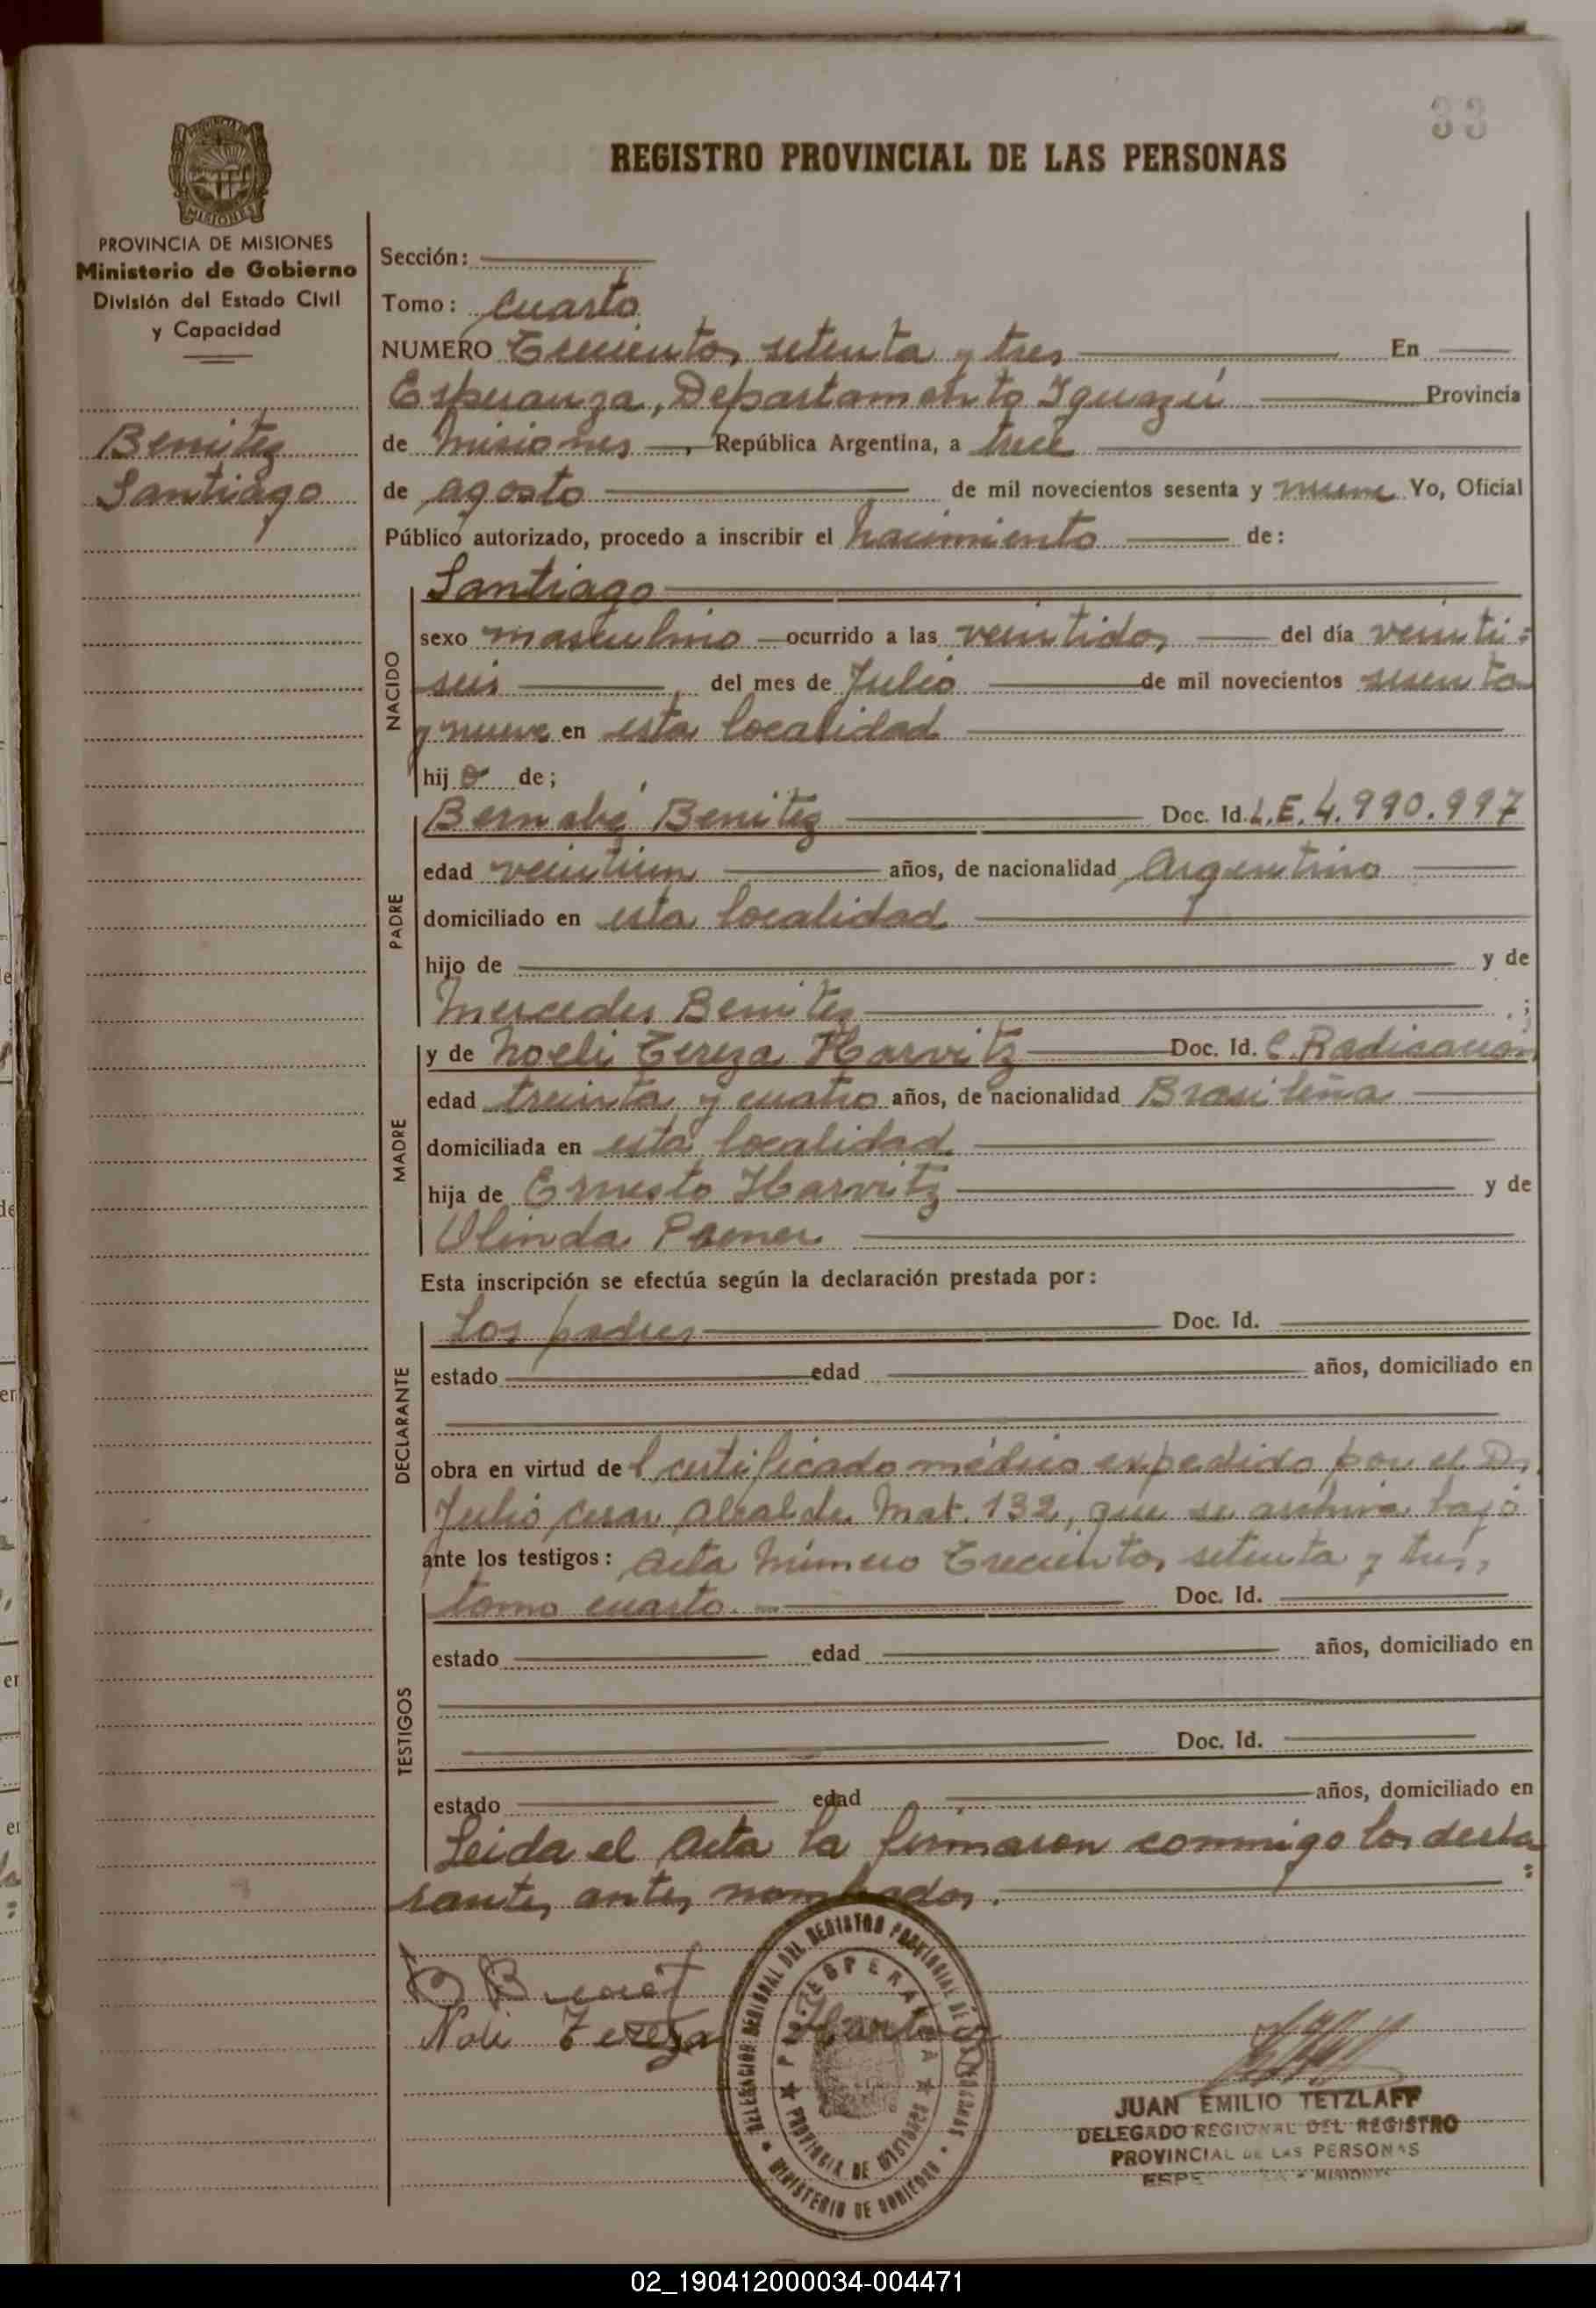 33
REGISTRO PROVINCIAL DE LAS PERSONAS
MISIONES
PROVINCIA DE MISIONES
Ministerio de Gobierno
División del Estado Civil
y Capacidad
Benitez
Santiago
Sección:
Tomo: Cuarto
NUMERO Trecientos setenta y tres En
Esperanza, Departamento Iguazú Provincia
de Misiones, República Argentina, a trece
de agosto de mil novecientos sesenta y nueve Yo, Oficial
Público autorizado, procedo a inscribir el nacimiento de:
NACIDO
Santiago
sexo masculino ocurrido a las veintidos del día veinti=
seis del mes de Julio de mil novecientos sesenta
y nueve en esta localidad
hijo de;
PADRE
Bernabé Benitez Doc. Id. L.E. 4.990.997
edad veintiun años, de nacionalidad Argentino
domiciliado en esta localidad
hijo de y de
Mercedes Benitez ;
MADRE
y de Noeli Tereza Harvitz Doc. Id. C. Radicación
edad treinta y cuatro años, de nacionalidad Brasileña
domiciliada en esta localidad
hija de Ernesto Harvitz y de
Olinda
Esta inscripción se efectúa según la declaración prestada por:
DECLARANTE
Los padres Doc. Id.
estado edad años, domiciliado en
obra en virtud del certificado médico expedido por el Dr.
Julio Cesar Alcalde Mat. 132, que se archiva bajo
ante los testigos: Acta Número Trecientos setenta y tres,
TESTIGOS
tomo cuarto. Doc. Id.
estado edad años, domiciliado en
Doc. Id.
estado edad años, domiciliado en
Leida el Acta la firmaron conmigo los decla
rantes antes nombrados.
Noli Tereza
DELEGACION REGIONAL DEL REGISTRO PROVINCIAL DE LAS PERSONAS
PTO. ESPERANZA
PROVINCIA DE MISIONES
MINISTERIO DE GOBIERNO
JUAN EMILIO TETZLAFF
DELEGADO REGIONAL DEL REGISTRO
PROVINCIAL DE LAS PERSONAS
MISIONES
02_190412000034-004471